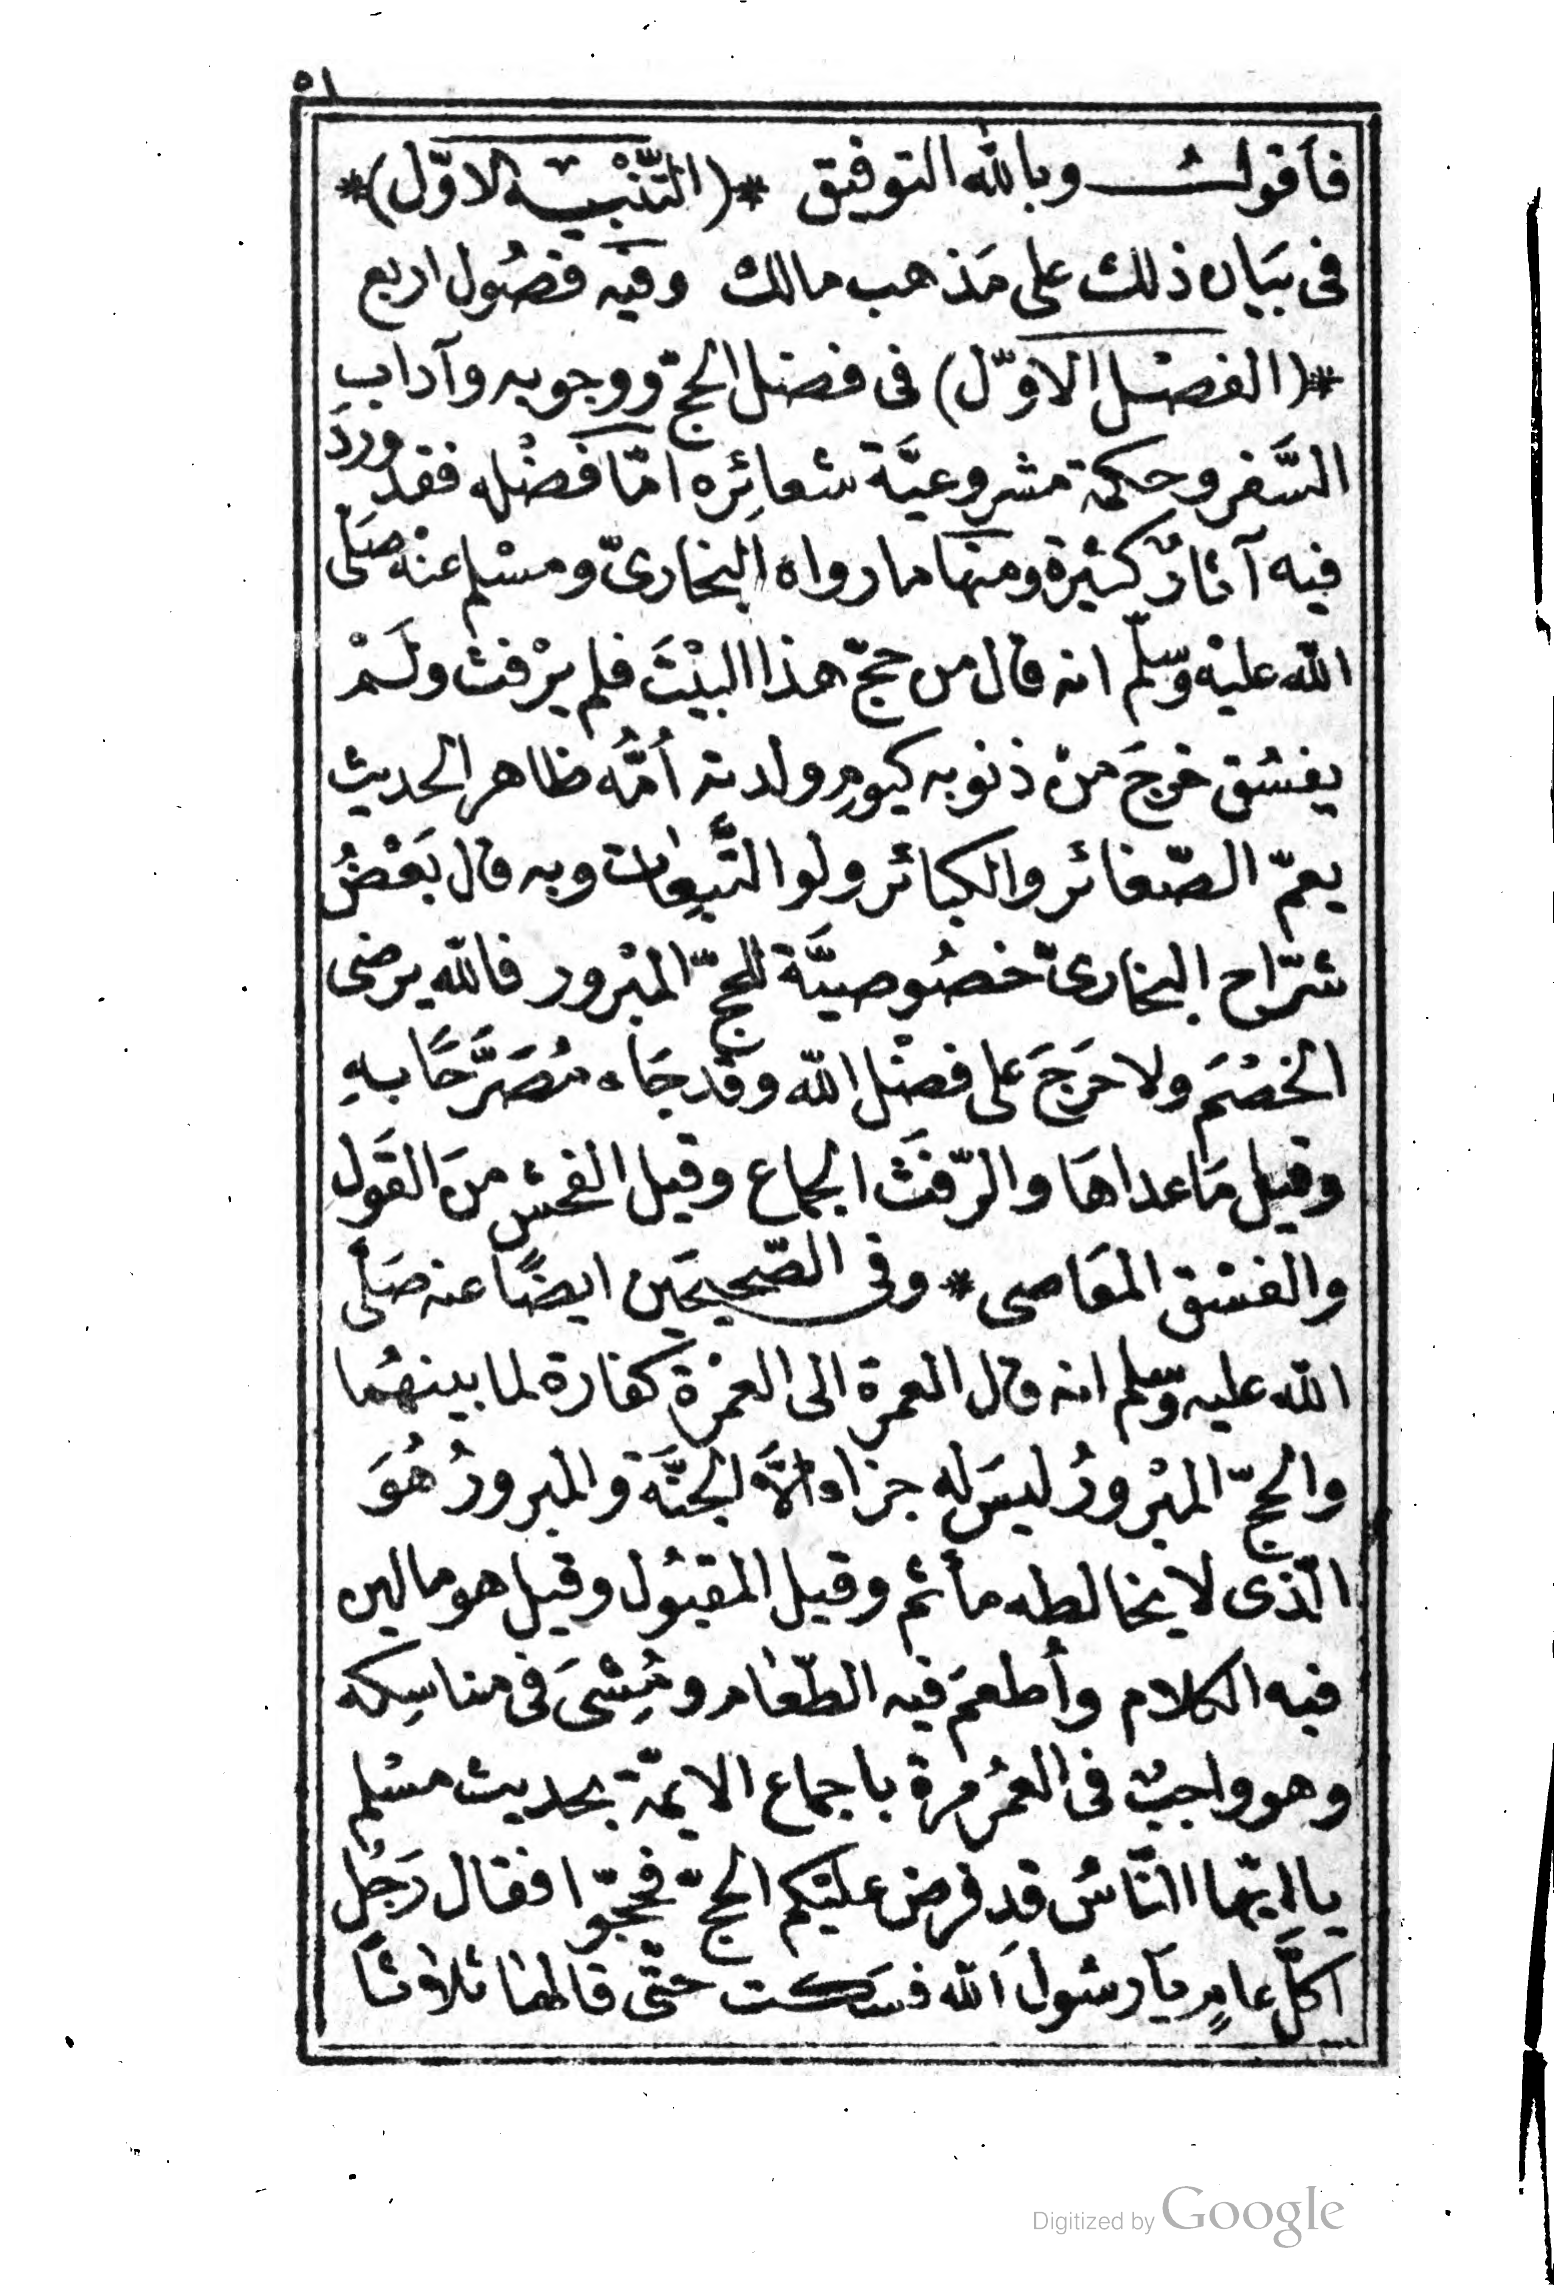 ٥١
فأقول وبالله التوفيق *(التّنْبيه الاوّل)*
فى بيَان ذلك على مَذهب مالك وفيه فصُول اربع
*(الفصْل الاوّل) فى فضل الحجّ ووجوبه وآداب
السَّفر وحكمة مشروعيَّة شعائِره امّا فضْله فقد ورَدَ
فيه آثارٌ كثيرة ومنها ما رواه البخارىّ ومسْلم عنْه صَلّى
الله عليْه وسّلّم انه قال من حجّ هذا البيْتَ فلم يرْفث ولَمْ
يفسُق خرجَ منْ ذنوبه كيومِ ولدته أمُّه ظاهر الحديث
يعمّ الصّغائر والكبائر ولو التَّبِعات وبه قال بَعْضُ
شرّاح البخارىّ خصُوصيَّة للحجّ المبْرور فالله يرضى
الخصْمَ ولا حَرَجَ على فضْل الله وقد جَاء مُصَرَّحًا بهِ
وقيل مَا عداهَا والرّفَث الجماع وقيل الفحش منَ القَول
والفسْق المعَاصى * وفى الصّحيحَين ايضًا عنه صَلّى
الله عليه وسّلم انه قال العمرة الى العمْرة كفارة لما بينهُما
والحجّ المبْرورُ ليسَ له جزاء الَّا الجنَّة والمبرورُ هُوَ
الّذى لا يخالطه مأثم وقيل المقبُول وقيل هو ما لين
فيه الكلام وأطعمَ فيه الطّعام ومُشِىَ فى مناسِكه
وهو واجبٌ فى العمُر مرة باجماع الايمّة بحديث مسْلم
يا ايّها النّاسُ قدِ فرض عليْكم الحجّ فحجّوا فقال رَجُل
اكلَّ عامٍ يَا رسُولَ الله فسَكت حتّى قالهَا ثلاثاً
Digitized by Google